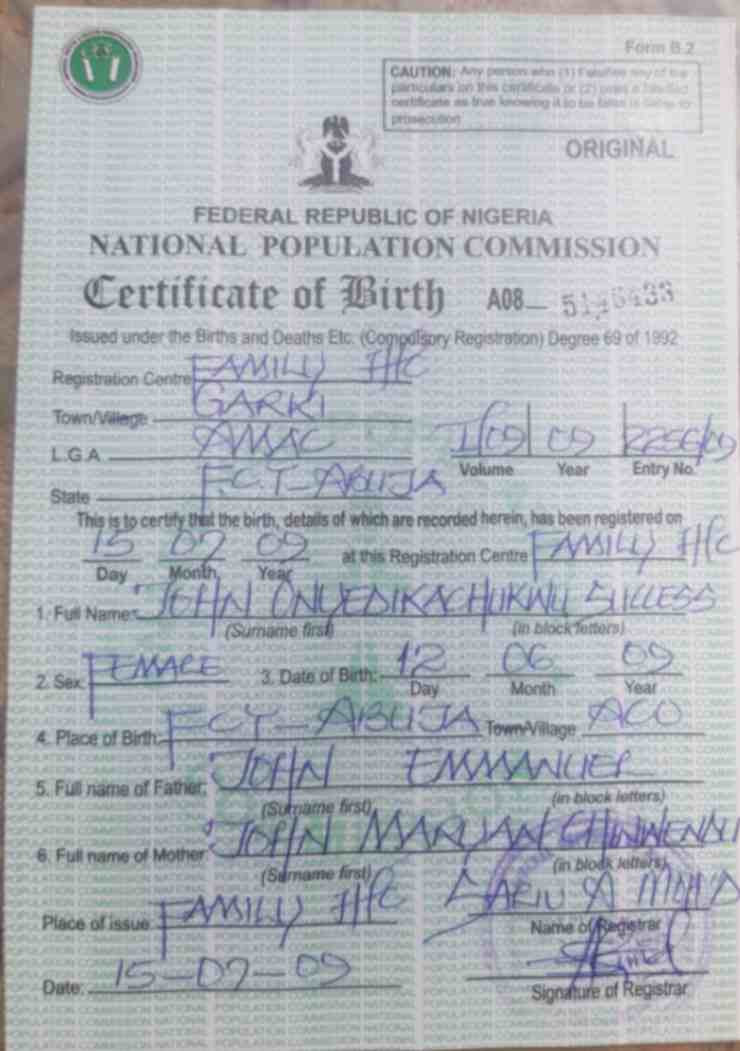 Form B.2
CAUTION: Any person who (1) Falsifies any of the
particulars on this certificate or (2) uses a falsified
certificate as true knowing it to be false is liable to
prosecution
ORIGINAL
FEDERAL REPUBLIC OF NIGERIA
NATIONAL POPULATION COMMISSION
Certificate of Birth A08
Issued under the Births and Deaths Etc. (Compulsory Registration) Degree 69 of 1992
Registration Centre FAMILY HC
Town/Village GARKI
L.G.A AMAC
Volume Year Entry No.
09
State F.C.T-ABUJA
This is to certify that the birth, details of which are recorded herein, has been registered on
15 07 09 at this Registration Centre FAMILY HC
Day Month Year
1. Full Name: JOHN ONYEDIKACHUKWU SUCCESS
(Surname first) (in block letters)
2. Sex FEMALE 3. Date of Birth: 12 06 09
Day Month Year
4. Place of Birth: FCT-ABUJA Town/Village ACO
5. Full name of Father: JOHN EMMANUEL
(Surname first) (in block letters)
6. Full name of Mother JOHN
(Surname first) (in block letters)
Place of issue FAMILY HC
Name of Registrar
Date: 15-07-09
Signature of Registrar